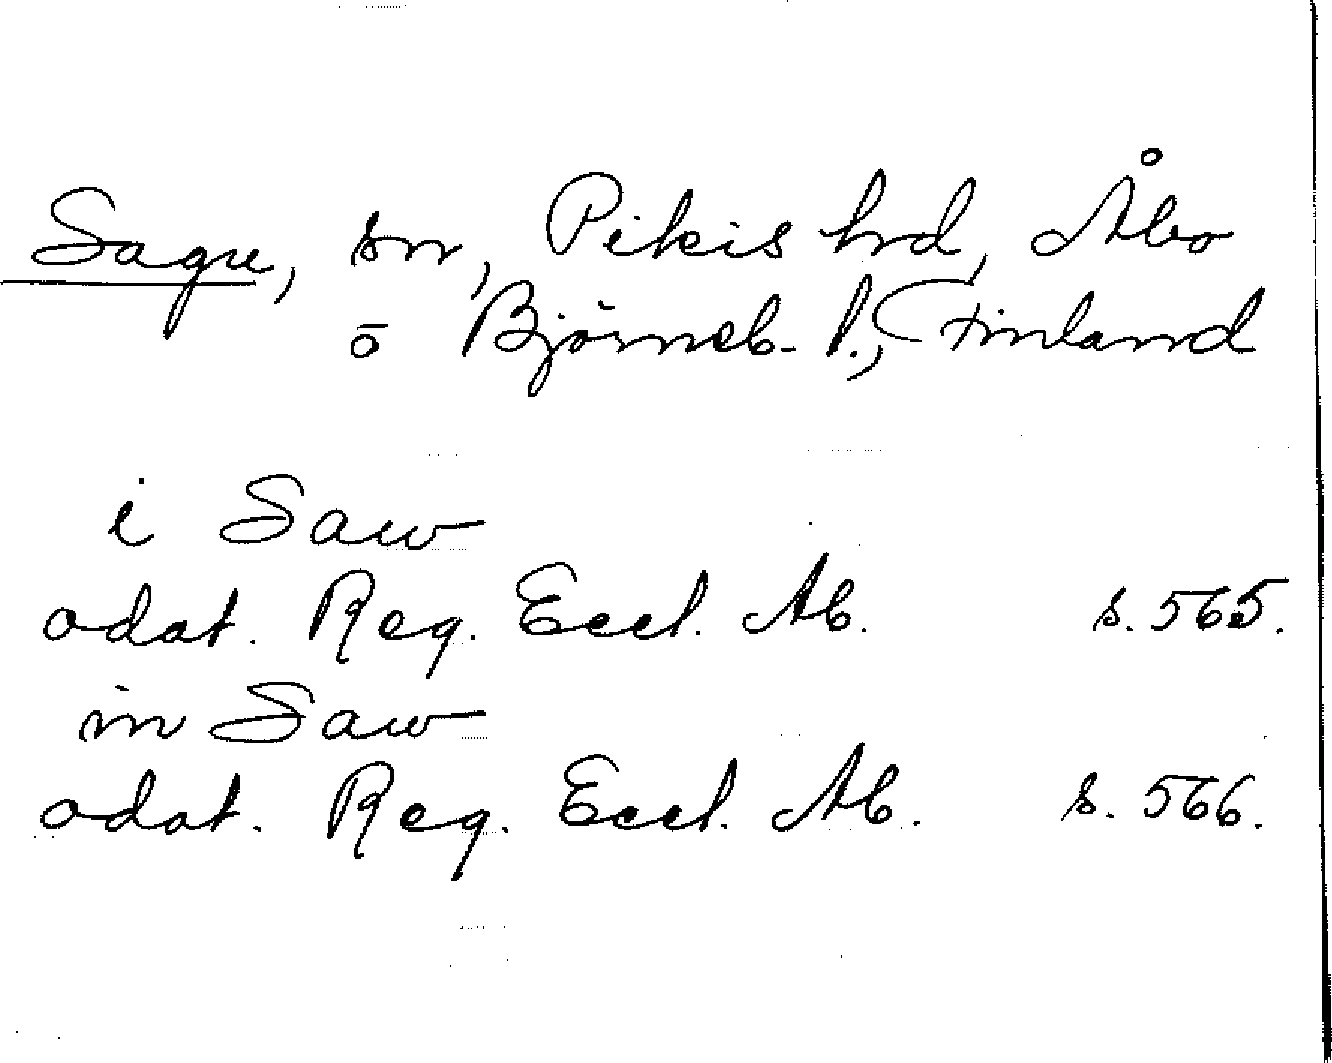 Sagu, sn, Pikis hrd, Åbo
o Björneb. l., Finland
i Saw
odat. Reg. Eccl. Ab. s. 565.
in Saw
odat. Reg. Eccl. Ab. s. 566.